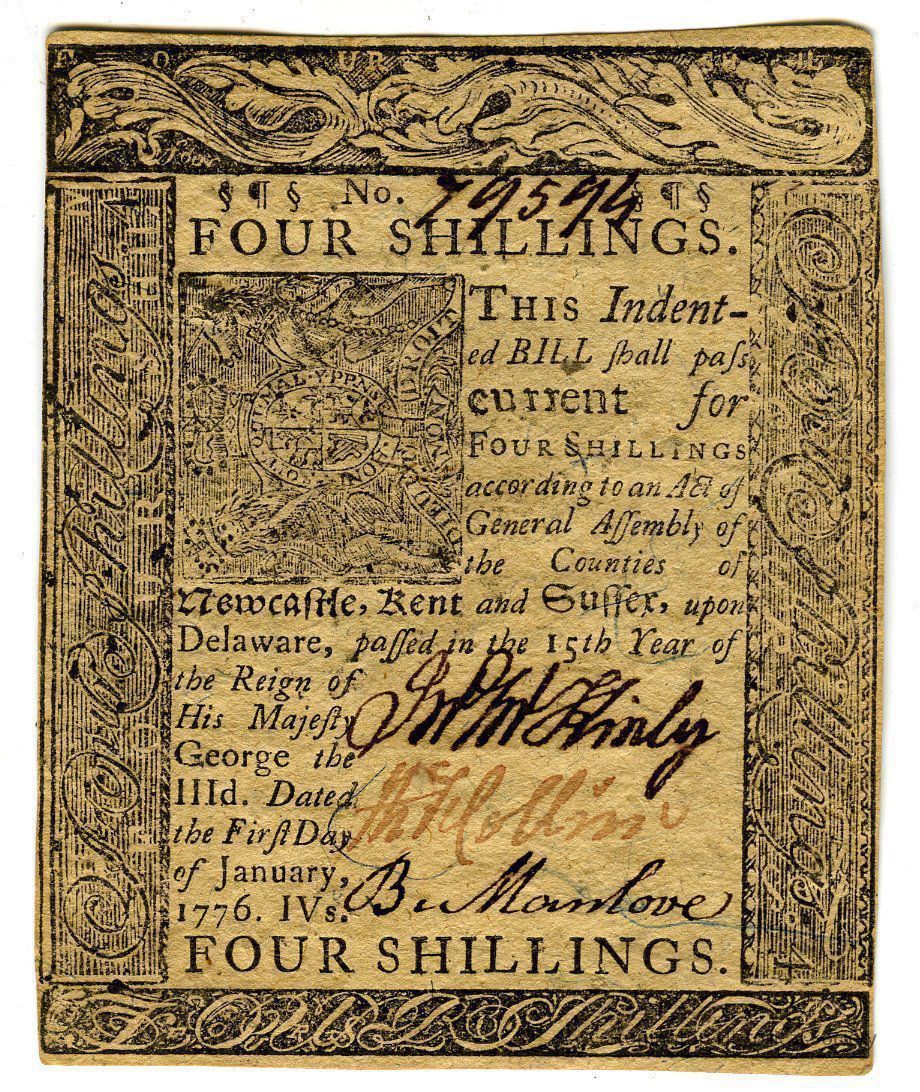 § ¶ § No. 79594 § ¶ §
FOUR SHILLINGS.
THIS Indent-
ed BILL ſhall paſs
current for
FOUR SHILLINGS
according to an Act of
General Aſſembly of
the Counties of
Newcaſtle, Kent and Suſſex, upon
Delaware, paſſed in the 15th Year of
the Reign of
His Majeſty
George the
IIId. Dated
the Firſt Day
of January,
1776. IVs.
Jno McKinly
Thos Collins
B. Manlove
FOUR SHILLINGS.
Four Shillings
Four Shillings
Shillings
DIEU
DROIT